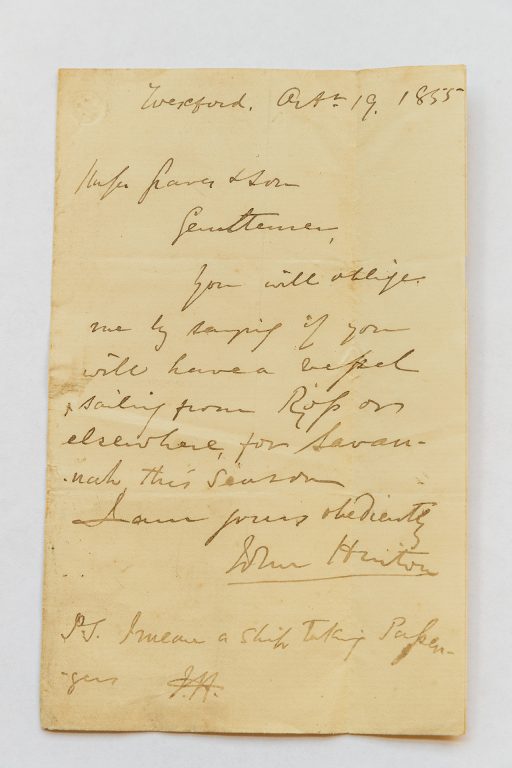 Wexford. Octr 19. 1855
Messrs Graves & Son
Gentlemen,
You will oblige
me by saying if you
will have a vessel
sailing from Ross or
elsewhere, for Savan-
-nah this Season
I am yours obediently
John Hinton
P.S. I mean a ship taking Passen-
-gers J.H.